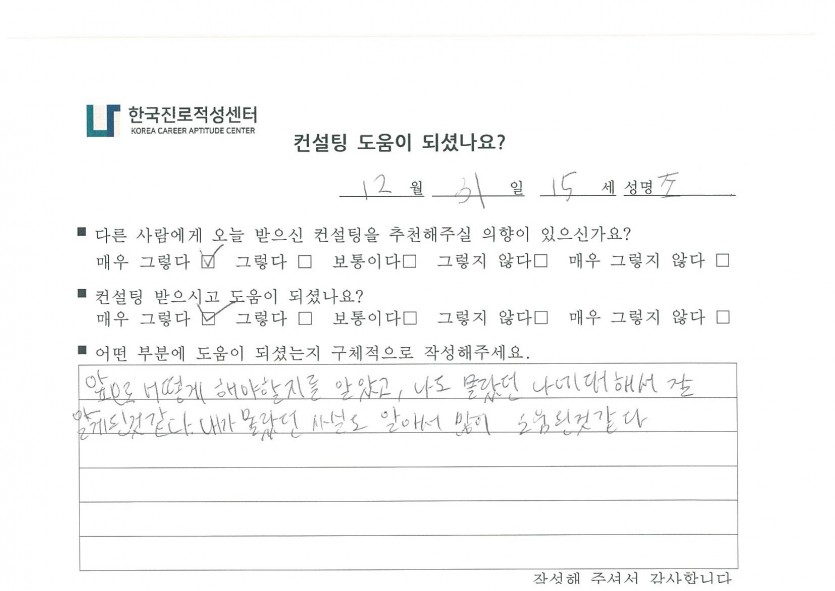 한국진로적성센터
KOREA CAREER APTITUDE CENTER
컨설팅 도움이 되셨나요?
12 월 31 일 15 세 성명 조
■ 다른 사람에게 오늘 받으신 컨설팅을 추천해주실 의향이 있으신가요?
매우 그렇다 ☑ 그렇다 □ 보통이다□ 그렇지 않다□ 매우 그렇지 않다 □
■ 컨설팅 받으시고 도움이 되셨나요?
매우 그렇다 ☑ 그렇다 □ 보통이다□ 그렇지 않다□ 매우 그렇지 않다 □
■ 어떤 부분에 도움이 되셨는지 구체적으로 작성해주세요.
앞으로 어떻게 해야할지를 알았고, 나도 몰랐던 나에대해서 잘
알게된것같다. 내가 몰랐던 사실도 알아서 많이 도움된것같다
작성해 주셔서 감사합니다